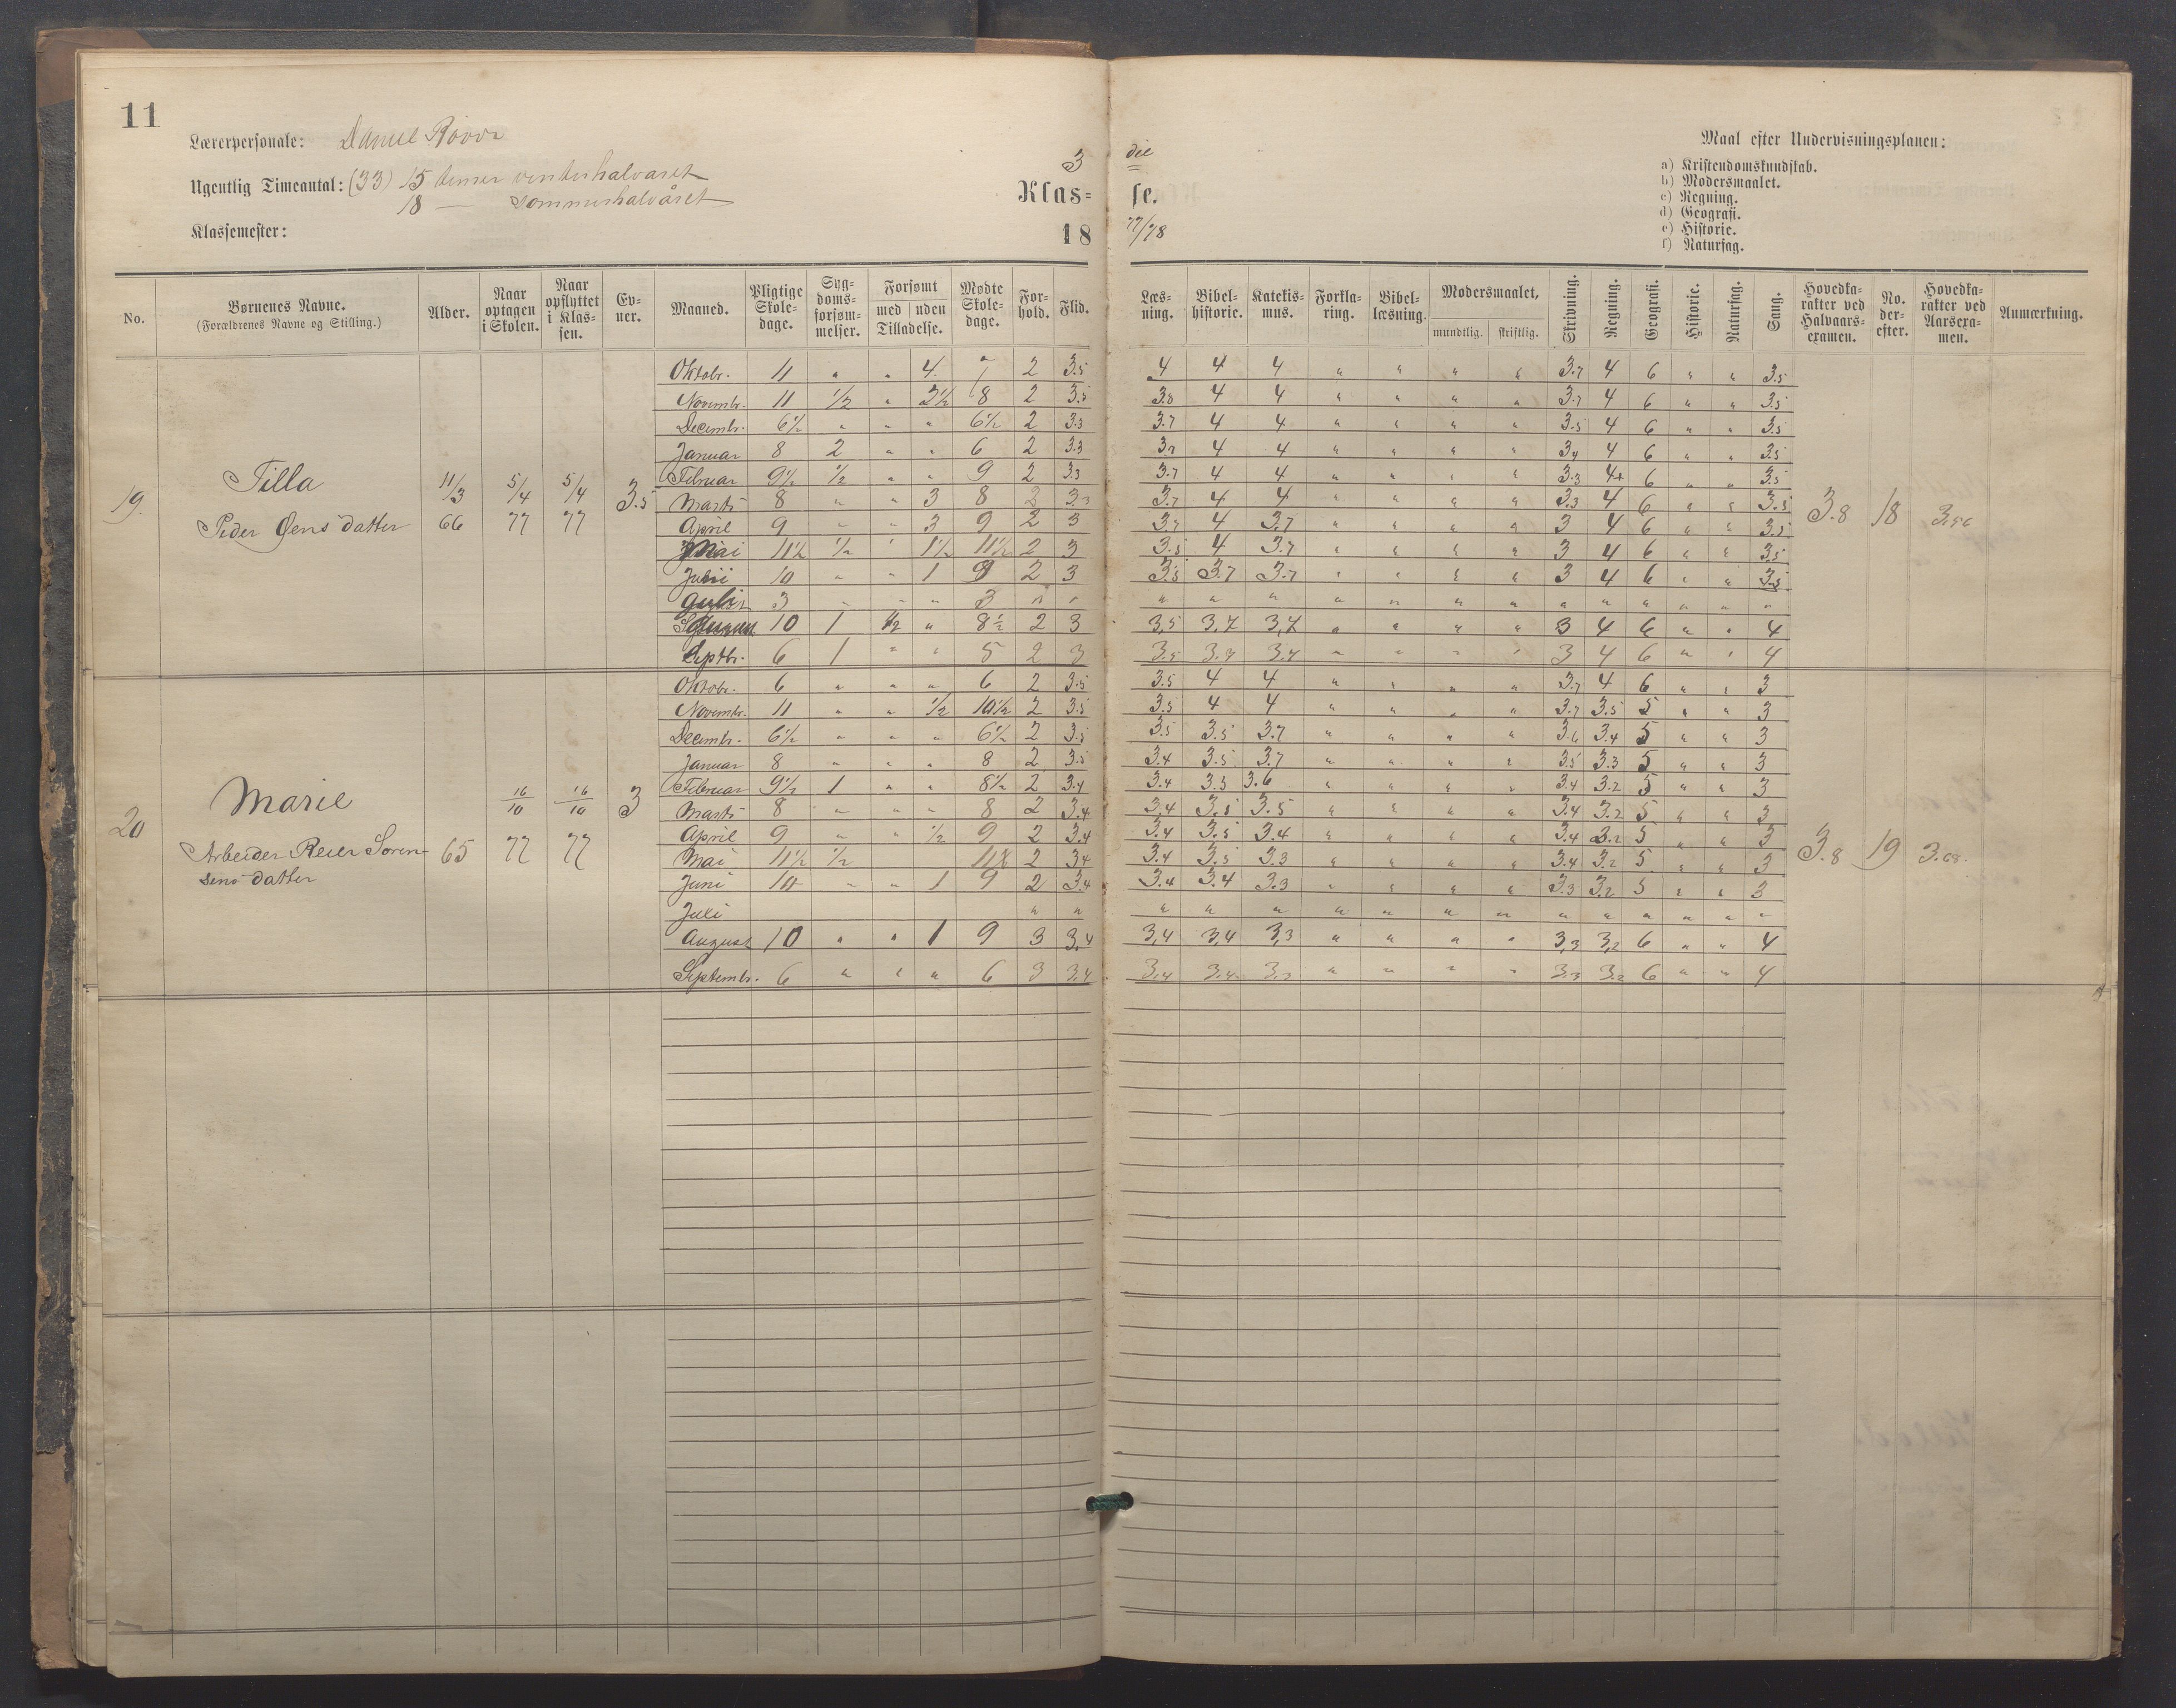 11
Lærerpersonale: Daniel
Ugentlig Timeantal: (33) 15 timer vinterhalvaret
18 — sommerhalvåret
Klassemester:
3 die
Klas= se.
18 77/78
Maal efter Undervisningsplanen:
a) Kristendomskundskab.
b) Modersmaalet.
c) Regning.
d) Geografi.
e) Historie.
f) Naturfag.
No. Børnenes Navne. (Forældrenes Navne og Stilling.) Alder. Naar optagen i Skolen. Naar opflyttet i Klas- sen. Ev- ner. Maaned. Pligtige Skole- dage. Syg- doms- forsøm- melser. Forsømt med uden Tilladelse. Mødte Skole- dage. For- hold. Flid. Læs- ning. Bibel- historie. Katekis- mus. Forkla- ring. Bibel- læsning. Modersmaalet, mundtlig. skriftlig. Skrivning. Regning. Geografi. Historie. Naturfag. Sang. Hovedka- rakter ved Halvaars- examen. No. der- efter. Hovedka- rakter ved Aarsexa- men. Anmærkning.
Oktobr. 11 " " 4. 7 2 3.5 4 4 4 " " " " 3.7 4 6 " " 3.5
Novembr. 11 1/2 " 2 1/2 8 2 3.5 3.8 4 4 " " " " 3.7 4 6 " " 3.5
Decembr. 6 1/2 " " " 6 1/2 2 3.3 3.7 4 4 " " " " 3.5 4 6 " " 3.5
Januar 8 2 " " 6 2 3.3 3.7 4 4 " " " " 3.4 4 6 " " 3.5
Februar 9 1/2 1/2 " " 9 2 3.3 3.7 4 4 " " " " 3.3 4 6 " " 3.5
19. Tilla 11/3 5/4 5/4 3.5
Marts 8 " " 3 8 2 3.3 3.7 4 4 " " " " 3.3 4 6 " " 3.5
3.8 18 3.56
Peder Jens datter 66 77 77
April 9 " " 3 9 2 3 3.7 4 3.7 " " " " 3 4 6 " " 3.5
Mai 11 1/2 1/2 " 1 1/2 11 1/2 2 3 3.5 4 3.7 " " " " 3 4 6 " " 3.5
Juni 10 " " 1 9 2 3 3.5 3.7 3.7 " " " " 3 4 6 " " 3.5
Juli 3 " " " 3 " " " " " " " " " " " " " " "
August 10 1 1/2 " 8 1/2 2 3 3,5 3,7 3,7 " " " " 3 4 6 " " 4
Septbr. 6 1 " " 5 2 3 3.5 3.7 3.7 " " " " 3 4 6 " " 4
Oktobr. 6 " " " 6 2 3.5 3.5 4 4 " " " " 3.7 4 6 " " 3
Novembr. 11 " " 1/2 10 1/2 2 3.5 3.5 4 4 " " " " 3.7 3.5 5 " " 3
Decembr. 6 1/2 " " " 6 1/2 2 3.5 3.5 3.5 3.7 " " " " 3.6 3.4 5 " " 3
Januar 8 " " " 8 2 3.5 3.4 3.5 3.7 " " " " 3.5 3.3 5 " " 3
Februar 9 1/2 1 " " 8 1/2 2 3.4 3.4 3.5 3.6 " " " " 3.4 3.2 5 " " 3
20 Marie 16/10 16/10 3
Marts 8 " " " 8 2 3.4 3.4 3.5 3.5 " " " " 3.4 3.2 5 " " 3
April 9 " " 1/2 9 2 3.4 3.4 3.5 3.4 " " " " 3.4 3.2 5 " " 3
Arbeider Reier Soren- 65 77 77
sens datter
3.8 19 3.68.
Mai 11 1/2 1/2 2 3.4 3.4 3.5 3.3 " " " " 3.4 3.2 5 " " 3
Juni 10 " " 1 9 2 3.4 3.4 3.4 3.3 " " " " 3.3 3.2 5 " " 3
Juli " " " " " " " " " " " " " " "
August 10 " " 1 9 3 3,4 3,4 3,4 3,3 " " " " 3,3 3,2 6 " " 4
Septembr. 6 " " " 6 3 3.4 3.4 3.4 3.2 " " " " 3.3 3.2 6 " " 4